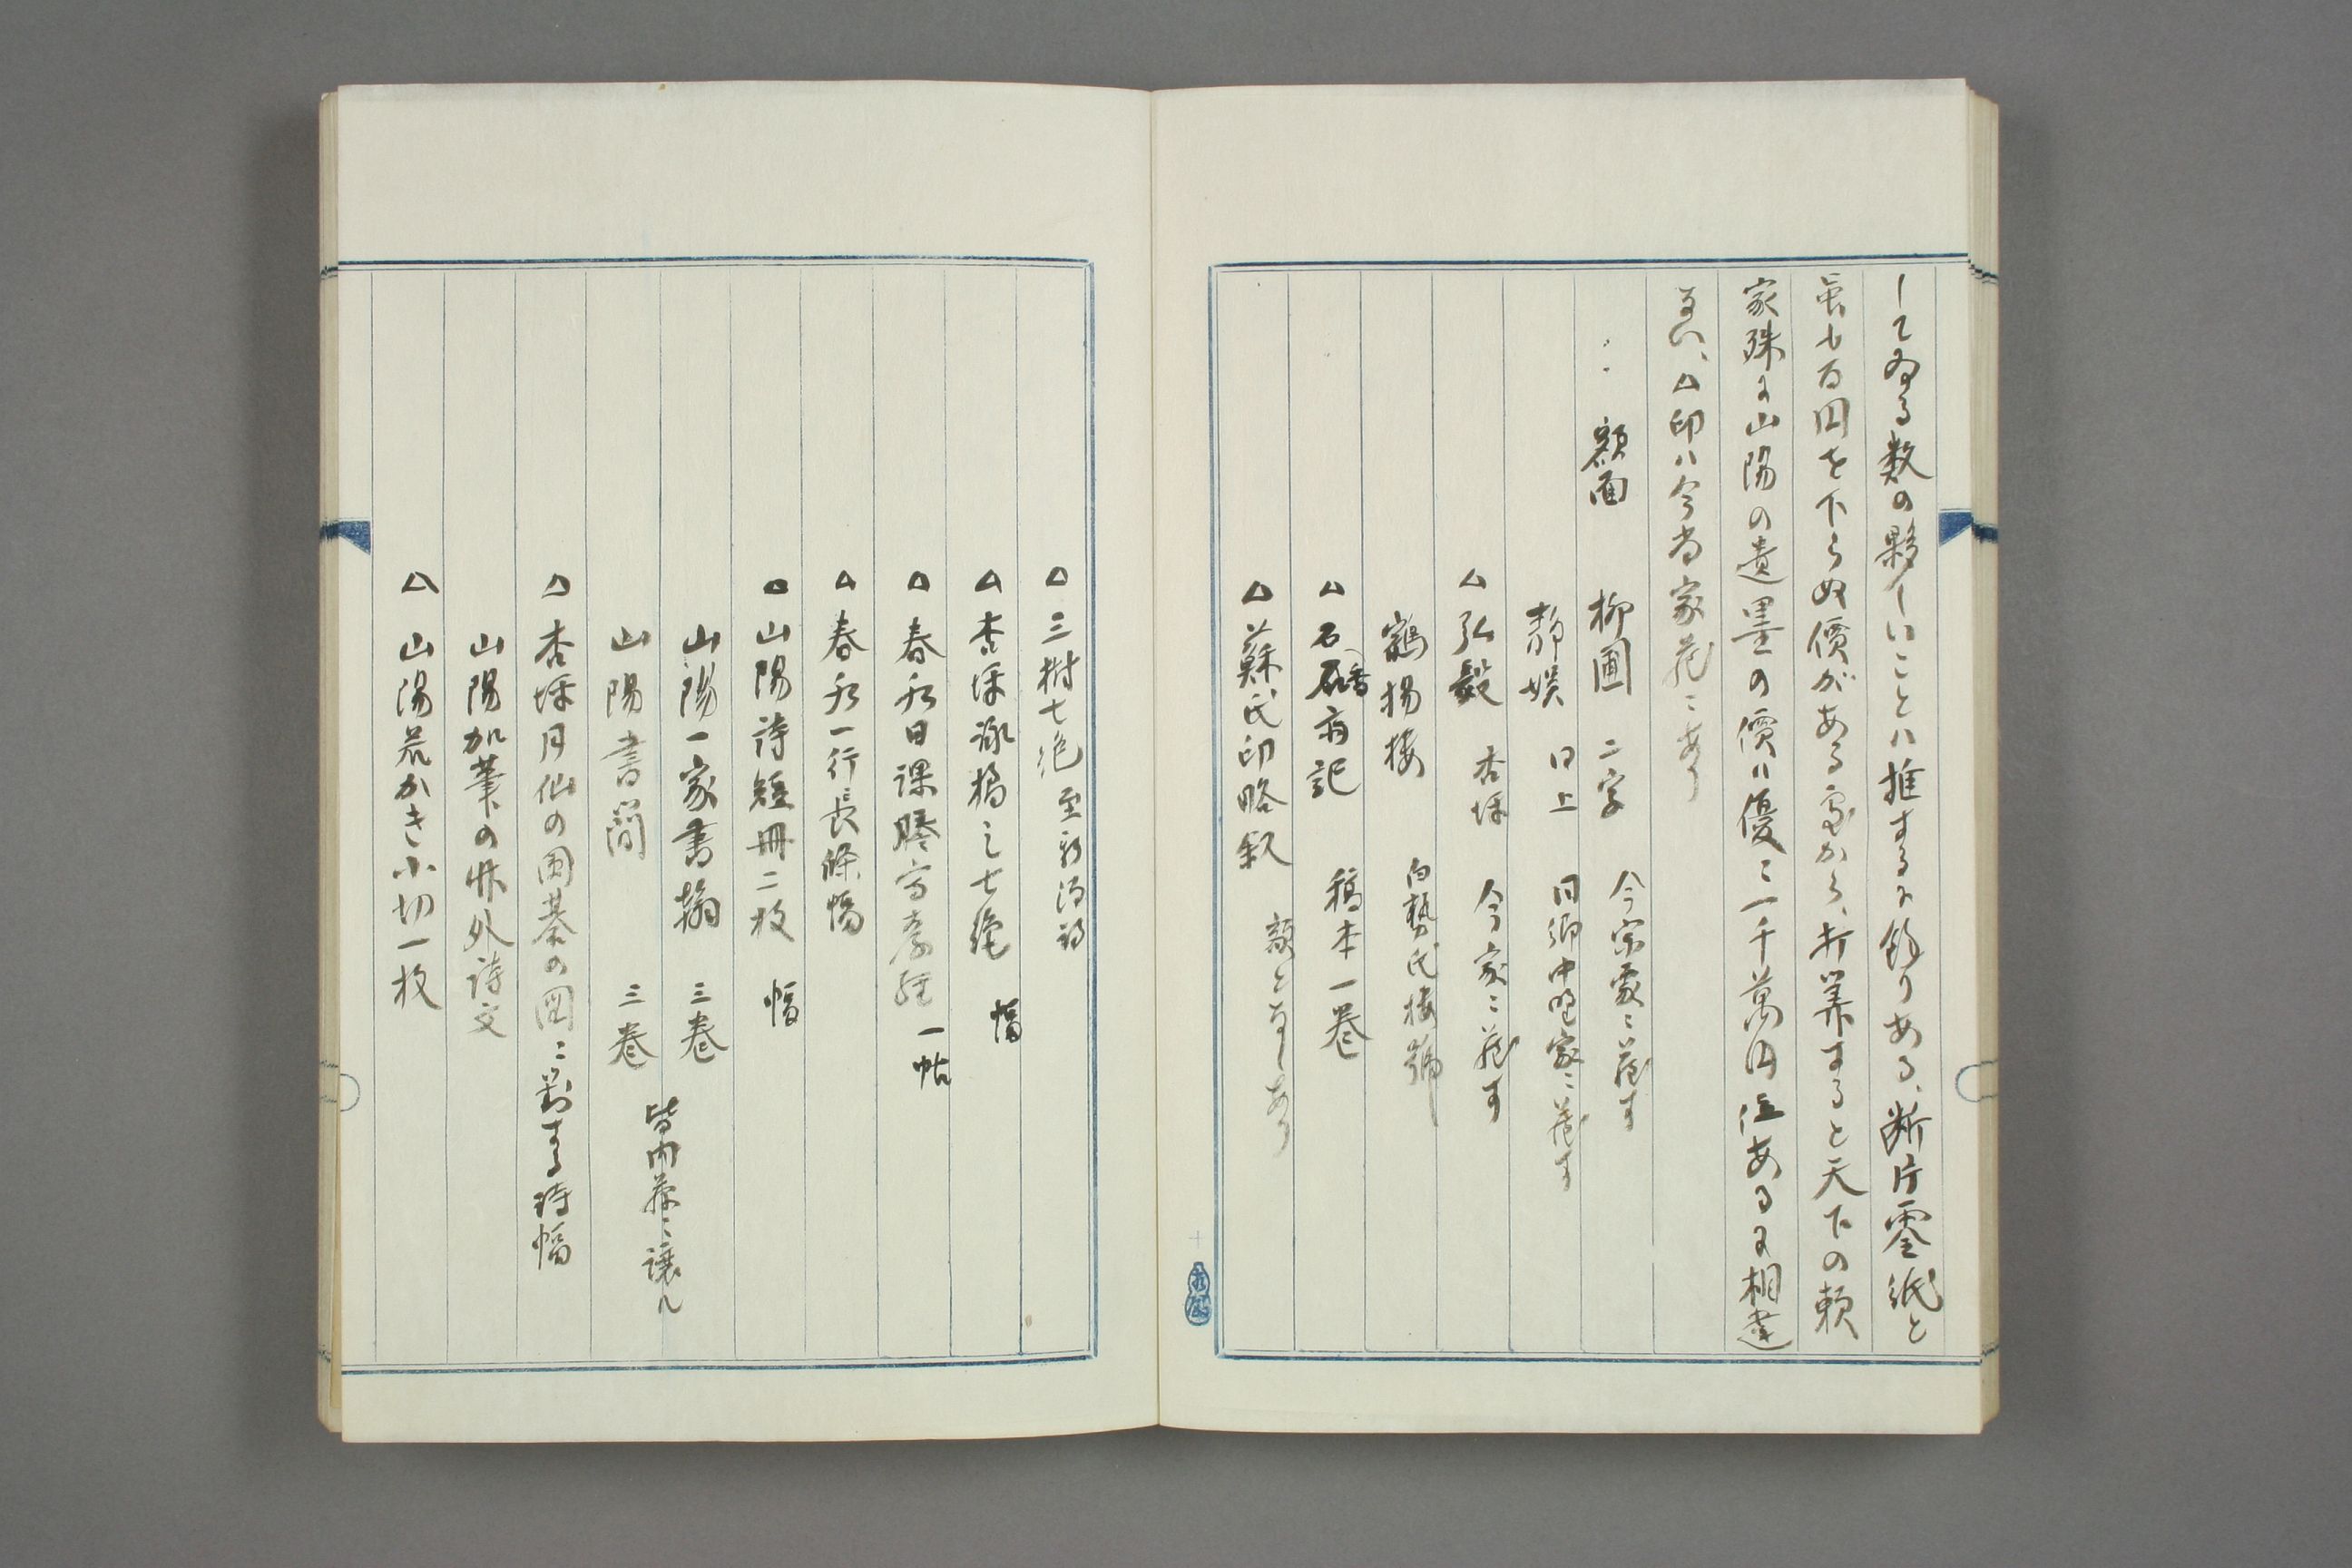 して居る数の夥しいことハ推するに餘りある、断片零紙と
雖も百円を下らぬ價がある處から、打算すると天下の頼
家殊に山陽の遺墨の價ハ優ニ一千萬円位あるに相違
ない、△印ハ今尚家蔵ニあり
額面 柳圃 二字 今宗家ニ蔵す
静娯 同上 同郷中野家ニ蔵す
△弘毅 杏坪 今家ニ蔵す
鶴揚楼 白勢氏楼號
△石 斎記 稿本一巻
△蘇氏印略叙 額となしあり
△三樹七絶 至新潟詩
△杏坪詠橘之七絶 幅
△春水日課謄写孝経 一帖
△春水一行長條幅
△山陽詩短冊二枚 幅
山陽一家書翰 三巻
山陽書簡 三巻 皆内藤ニ譲ル
△杏坪月仙の囲碁の図ニ対する詩幅
山陽加筆の 外詩文
△山陽荒かき小切一枚